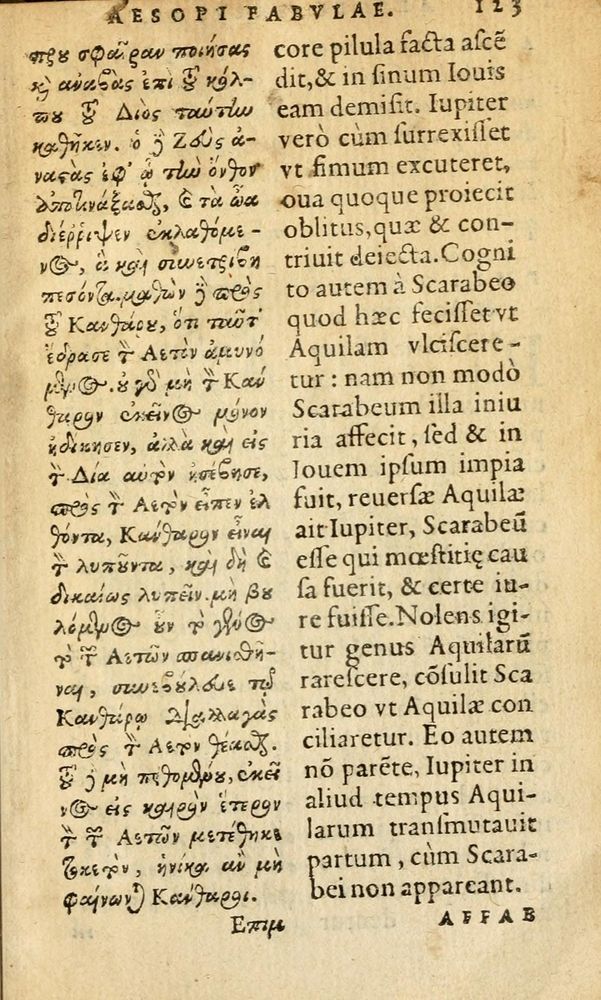 AESOPI FABVLAE. 123
πρου σφαῖραν ποιήσας
κỳ ἀναβὰς ἐπὶ τοῦ κόλ-
που τοῦ Διὸς ταύτην
καθῆκεν. ὁ δὲ Ζεὺς ἀ-
ναςὰς ἐφ' ᾧ τὴν ὄνθον
ἀποτινάξαϛ, καὶ τὰ ὠὰ
διέῤῥιψεν ἐκλαθόμε-
νος, ἃ καὶ συνετρίβη
πεσόντα. μαθὼν δὲ πρὸς
τοῦ Κανθάρου, ὅτι ταῦτ'
ἔδρασε τὸν Αετὸν ἀμυνό
μενος. οὐ γὰρ δὴ τὸν Κάν
θαρον ἐκεῖνος μόνον
ἠδίκησεν, ἀλλὰ καὶ εἰς
τὸν Δία αὐτὸν ἠσέβησε,
πρὸς τὸν Αετὸν εἶπεν ἐλ
θόντα, Κάνθαρον εἶναι
τὸν λυποῦντα, καὶ δὴ καὶ
δικαίως λυπεῖν. μὴ βου
λόμενος οὖν τὸ γένος
τὸ τῶν Αετῶν σπανισθῆ-
ναι, συνεβούλευε τῷ
Κανθάρῳ διαλλαγὰς
πρὸς τὸν Αετὸν θέσθαι.
τοῦ δὲ μὴ πειθομένου, ἐκεῖ
νος εἰς καιρὸν ἕτερον
τὸν τῶν Αετῶν μετέθηκε
τοκετὸν, ἡνίκα ἂν μὴ
φαίνωνται Κάνθαροι.
Επιμ
core pilula facta ascẽ
dit,& in sinum Iouis
eam demisit. Iupiter
verò cùm surrexisset
vt fimum excuteret,
oua quoque proiecit
oblitus,quæ & con-
triuit deiecta.Cogni
to autem à Scarabeo
quod hæc fecisset vt
Aquilam vlciscere-
tur : nam non modò
Scarabeum illa iniu
ria affecit, sed & in
Iouem ipsum impia
fuit, reuersæ Aquilæ
ait Iupiter, Scarabeũ
esse qui mœstitię cau
sa fuerit, & certe iu-
re fuisse.Nolens igi-
tur genus Aquilarũ
rarescere, cõsulit Sca
rabeo vt Aquilæ con
ciliaretur. Eo autem
nõ parẽte, Iupiter in
aliud tempus Aqui-
larum transmutauit
partum, cùm Scara-
bei non appareant.
AFFAB